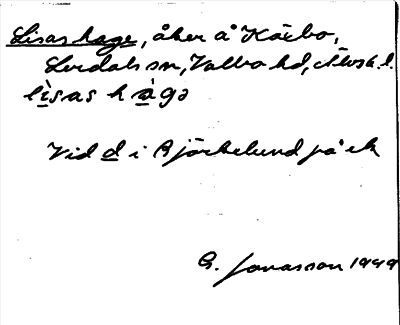 Lisas hage, åker å Kärbo,
Lerdals sn, Valbo hd, Älvsb. l.
lìsas hàgə
Vid d i Björkelund på ek
G. Jonasson 1949